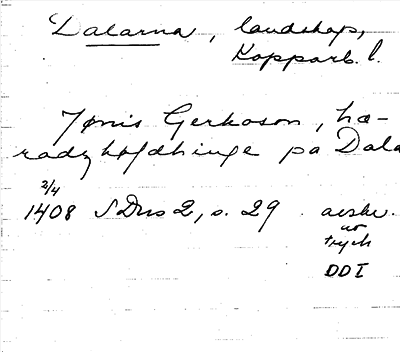 Dalarna, landskap,
Kopparb. l.
Jønis Gerkoson, hæ-
radzhøfdhinge pa Dala
2/4
1408 SDns 2, s. 29 avskr.
ur
tryck
DDI